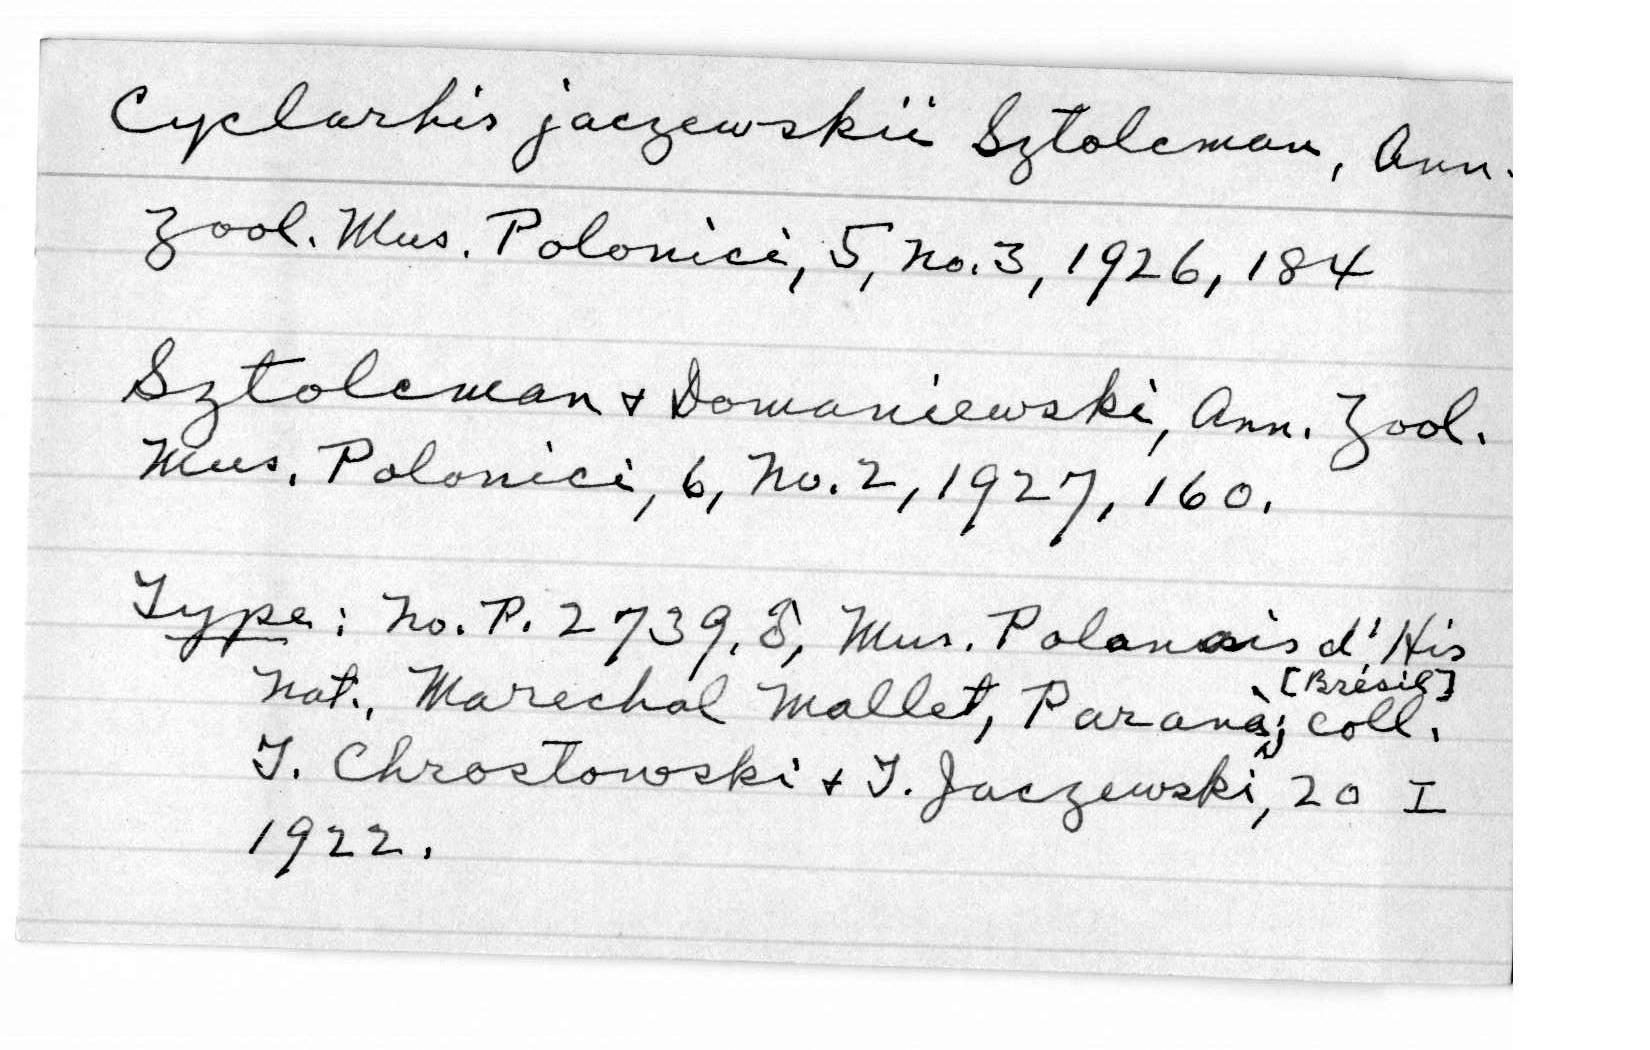 Cyclarhis jaczewskii Sztolcman, Ann.
Zool. Mus. Polonici, 5, No. 3, 1926, 184
Sztolcman & Domaniewski, Ann. Zool.
Mus. Polonici, 6, No. 2, 1927, 160.
Type: No. P. 2739. ♂, Mus. Polonais d'His
Nat., Marechal Mallet, Parana, [Brésil]; coll.
T. Chrostowski & T. Jaczewski, 20 I
1922.